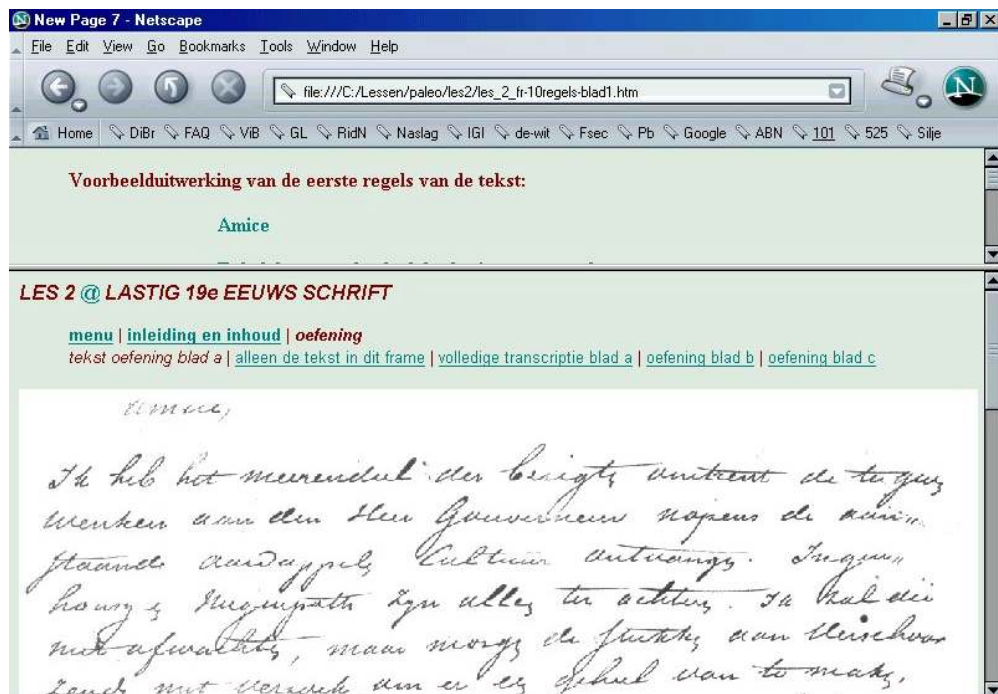 New Page 7 - Netscape
File Edit View Go Bookmarks Tools Window Help
file:///C:/Lessen/paleo/les2/les_2_fr-10regels-blad1.htm
Home DiBr FAQ ViB GL RidN Naslag IGI de-wit Fsec Pb Google ABN 101 525 Silje
Voorbeelduitwerking van de eerste regels van de tekst:
Amice
LES 2 @ LASTIG 19e EEUWS SCHRIFT
menu | inleiding en inhoud | oefening
tekst oefening blad a | alleen de tekst in dit frame | volledige transcriptie blad a | oefening blad b | oefening blad c
Amice,
Ik heb het meerendeel der berigten omtrent de
wenken aan den Heer Gouverneur nopens de aan„
staande aardappel Cultuur ontvangen.
zyn alles ten achter. Ik zal die
niet afwachten, maar morgen de stukken aan
zende met verzoek om er een geheel van te maken,